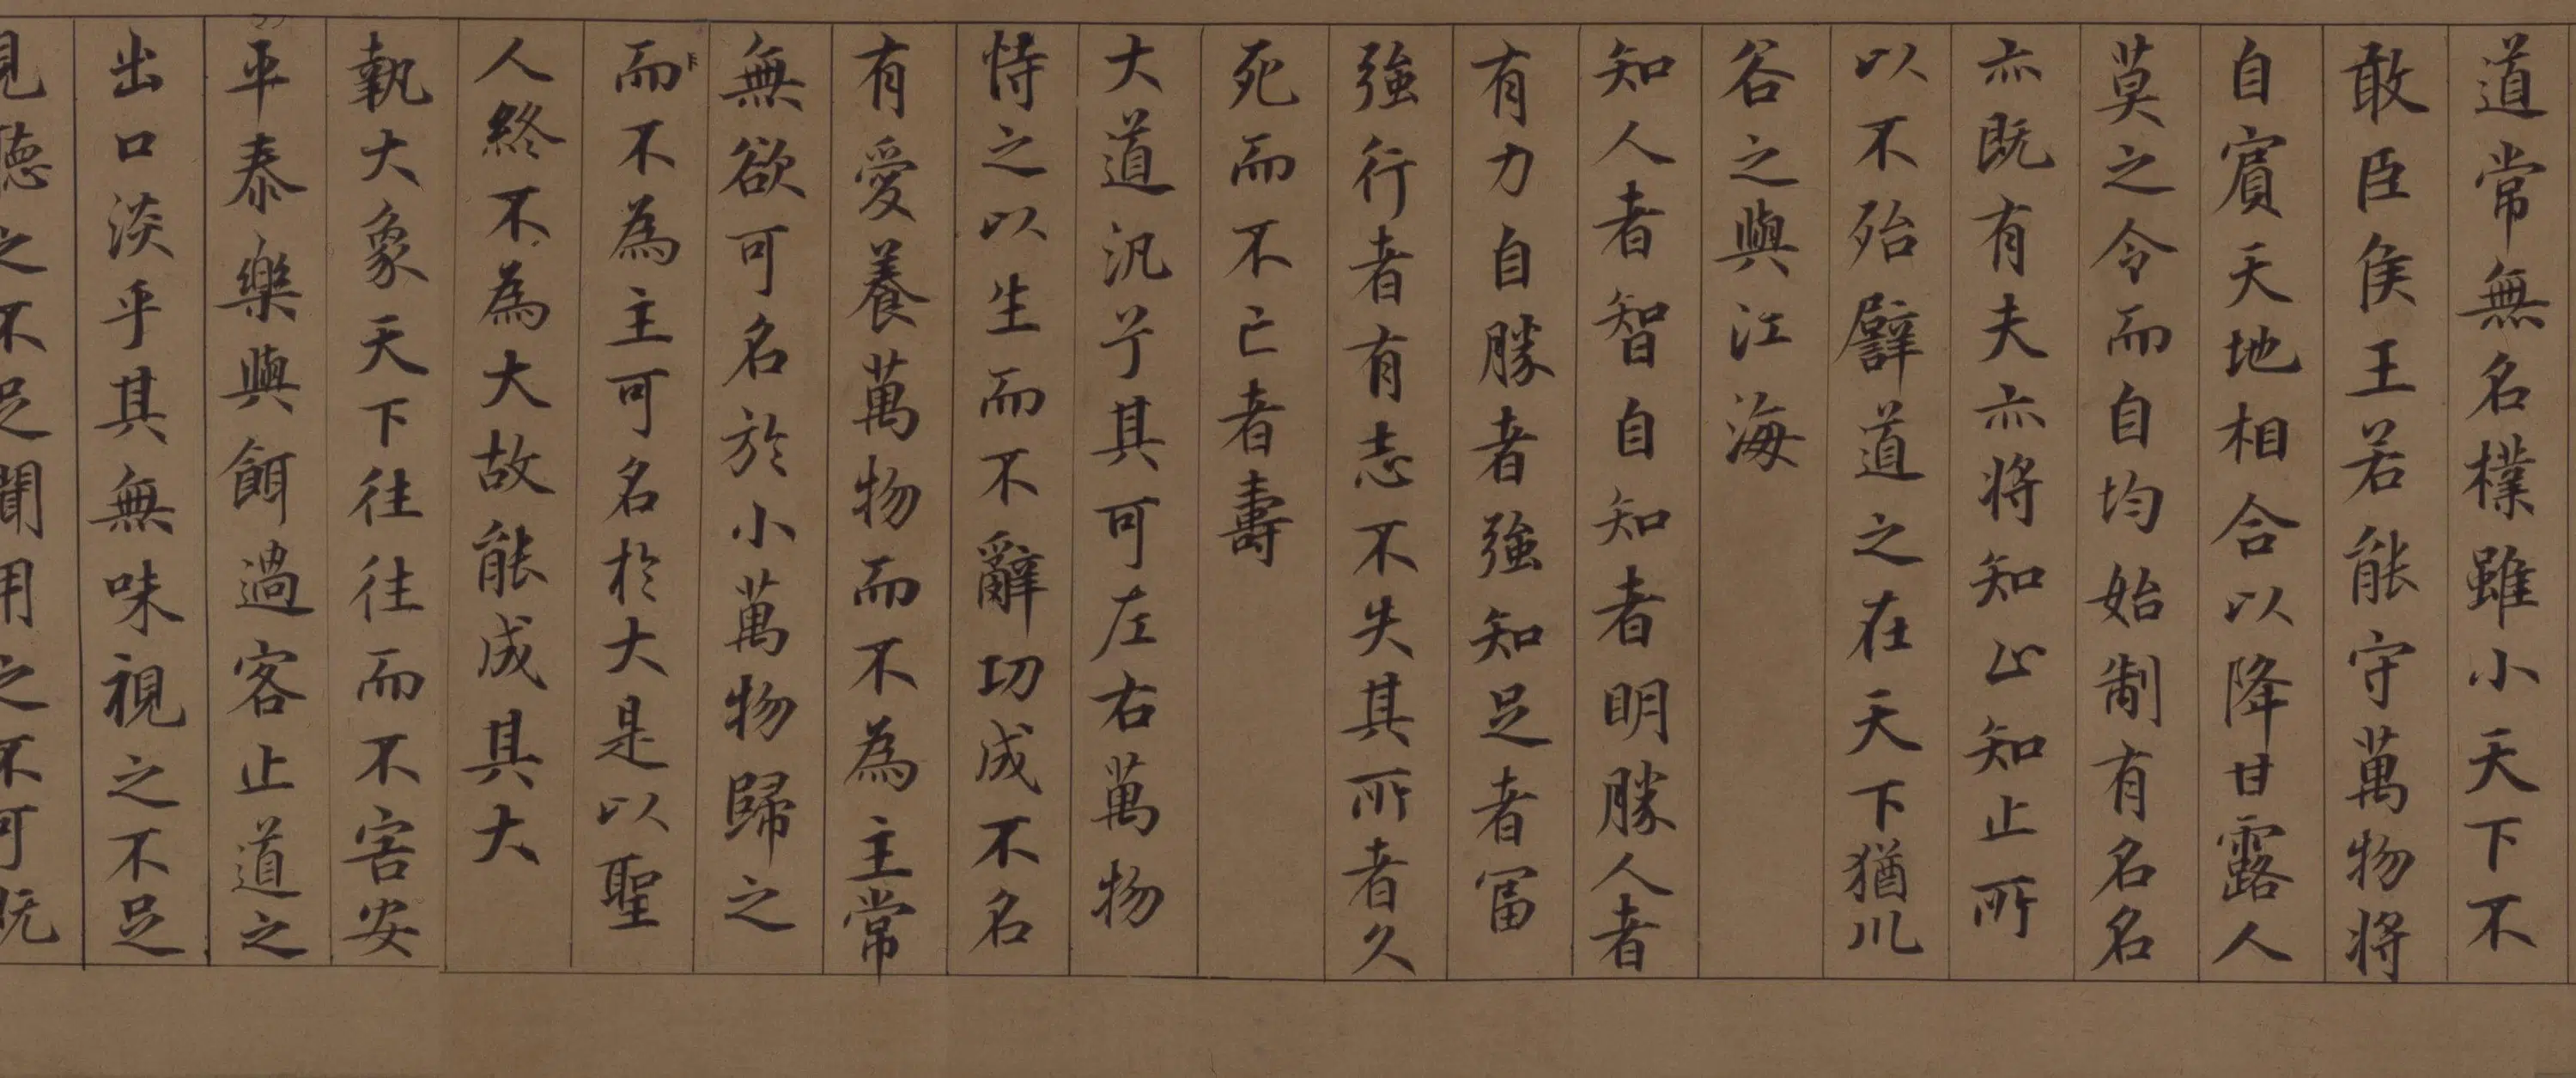 道常無名樸雖小天下不
敢臣侯王若能守萬物將
自賓天地相合以降甘露人
莫之令而自均始制有名名
亦既有夫亦將知止知止所
以不殆譬道之在天下猶川
谷之與江海
知人者智自知者明勝人者
有力自勝者強知足者富
強行者有志不失其所者久
死而不亡者壽
大道汎兮其可左右萬物
恃之以生而不辭功成不名
有愛養萬物而不為主常
無欲可名於小萬物歸之
而不為主可名於大是以聖
人終不為大故能成其大
執大象天下往往而不害安
平泰樂與餌過客止道之
出口淡乎其無味視之不足
見聽之不足聞用之不可既